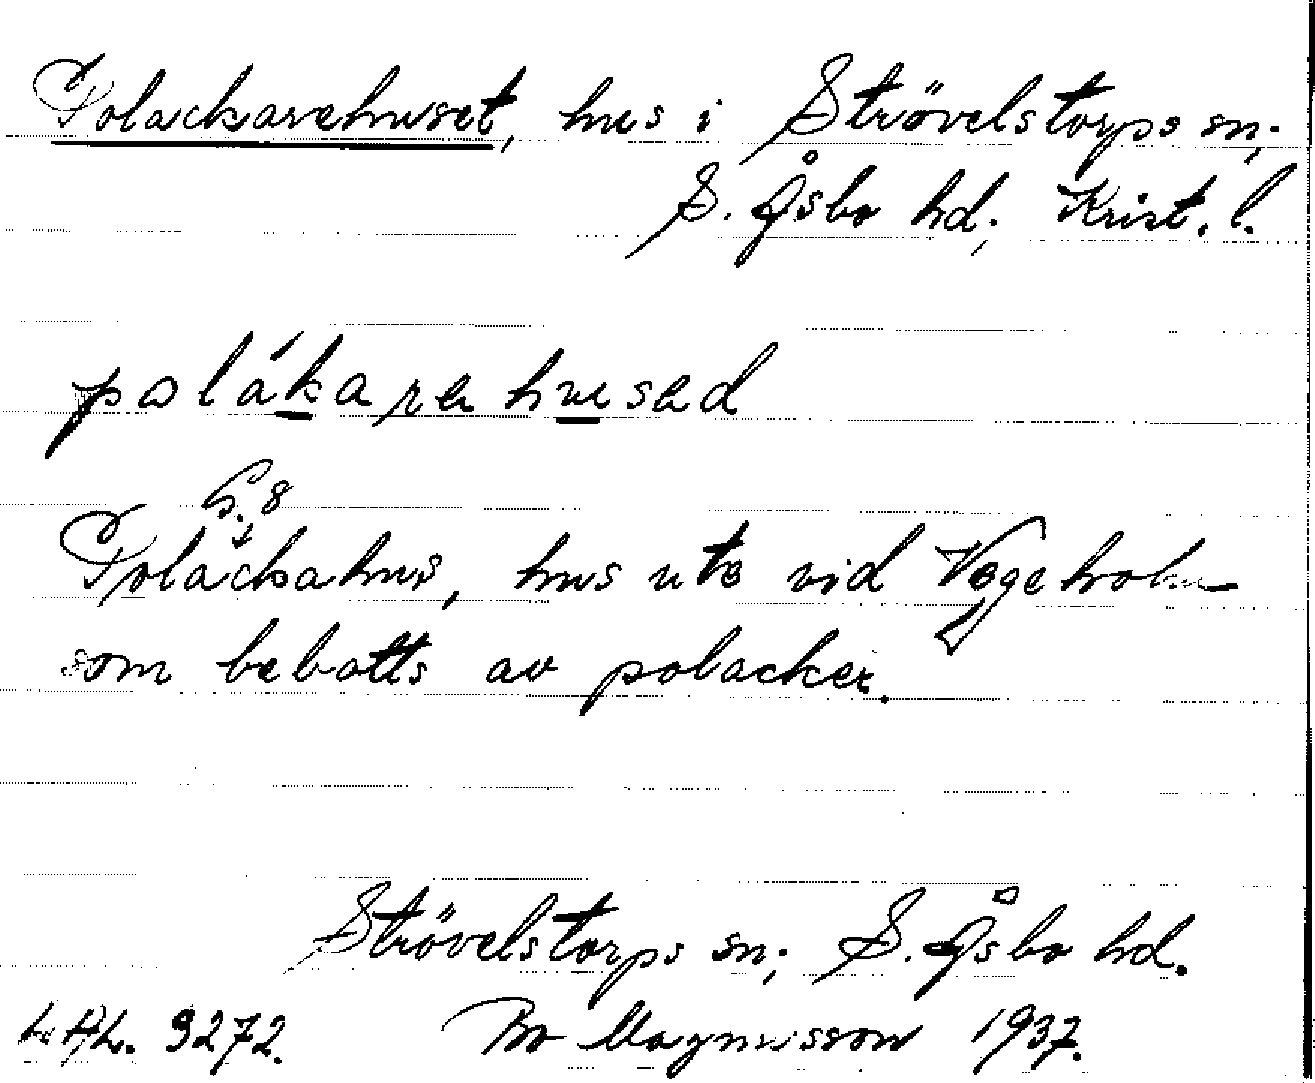 Polackarehuset, hus i Strövelstorps sn;
S. Åsbo hd; Krist. l.
polákarehused
G. 8
Polackahus, hus ute vid Vegeholm
som bebotts av polacker.
Strövelstorps sn; S. Åsbo hd.
9272. Bo Magnusson 1937.